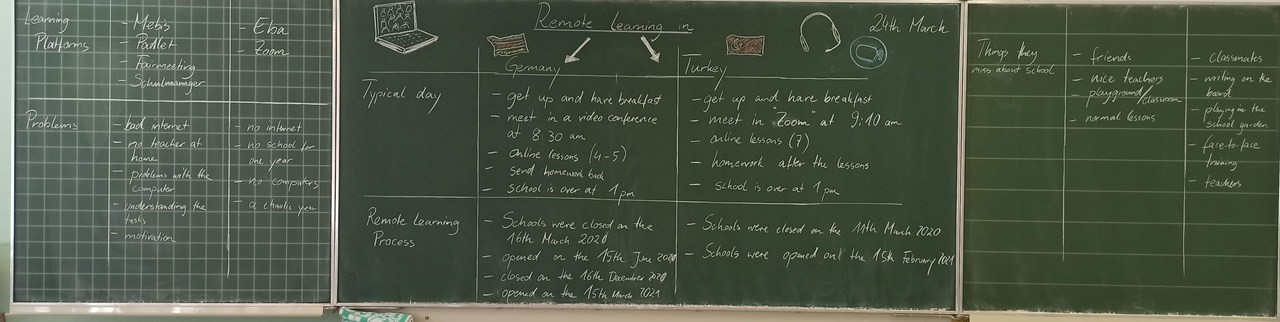 Learning
Platforms
- Mebis
- Padlet
- Fairmeeting
- Schulmanager
- Eba
- Zoom
Problems
- bad internet
- no teacher at
home
- problems with the
computer
- understanding the
tasks
- motivation
- no internet
- no school for
one year
- no computers
- a chaotic year
Remote Learning in
24th March
Germany
Turkey
Typical day
- get up and have breakfast
- meet in a video conference
at 8:30 am
- Online lessons (4-5)
- send homework back
- school is over at 1 pm
- get up and have breakfast
- meet in "Zoom" at 9:10 am
- online lessons (7)
- homework after the lessons
- school is over at 1 pm
Remote Learning
Process
- Schools were closed on the
16th March 2020
- opened on the 15th June 2020
- closed on the 16th December 2020
- opened on the 15th March 2021
- Schools were closed on the 11th March 2020
- Schools were opened on the 15th February 2021
Things they
miss about school
- friends
- nice teachers
- playground/classroom
- normal lessons
- classmates
- writing on the
board
- playing in the
school garden
- face-to-face
training
- teachers